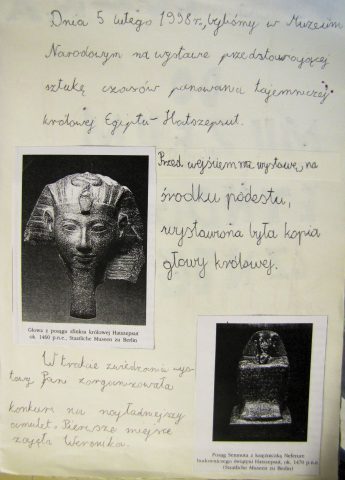 Dnia 5 lutego 1998r., byliśmy w Muzeum
Narodowym na wystawie przedstawiającej
sztukę czasów panowania tajemniczej
królowej Egiptu-Hatszepsut.
Przed wejściem na wystawę, na
środku podestu,
wystawiona była kopia
głowy królowej.
Głowa z posągu sfinksa królowej Hatszepsut
ok. 1490 p.n.e., Staatliche Museen zu Berlin
W trakcie zwiedzania wys-
tawy Pani zorganizowała
konkurs na najładniejszy
amulet. Pierwsze miejsce
zajęła Weronika.
Posąg Senmuta z księżniczką Nefrure
budowniczego świątyni Hatszepsut, ok. 1470 p.n.e
(Staatliche Museen zu Berlin)